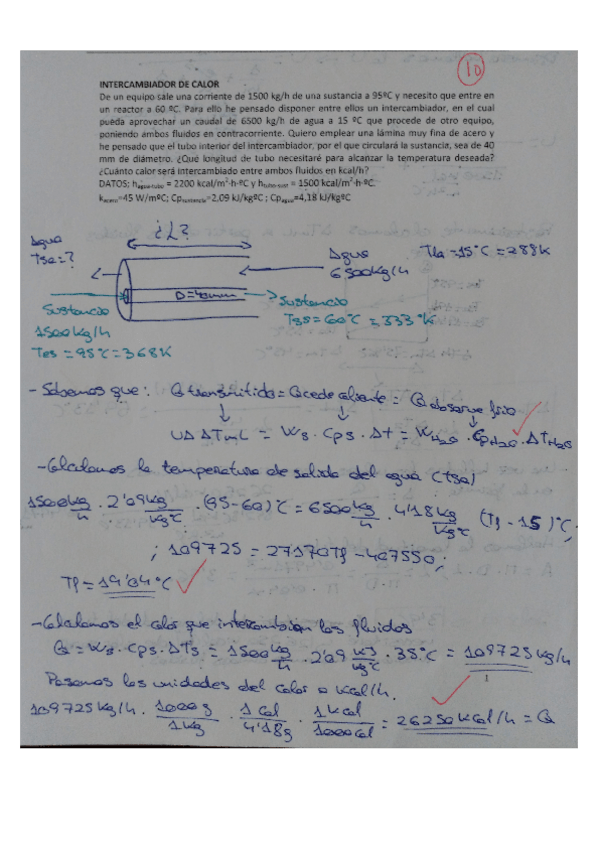 10
INTERCAMBIADOR DE CALOR
De un equipo sale una corriente de 1500 kg/h de una sustancia a 95ºC y necesito que entre en
un reactor a 60 ºC. Para ello he pensado disponer entre ellos un intercambiador, en el cual
pueda aprovechar un caudal de 6500 kg/h de agua a 15 ºC que procede de otro equipo,
poniendo ambos fluidos en contracorriente. Quiero emplear una lámina muy fina de acero y
he pensado que el tubo interior del intercambiador, por el que circulará la sustancia, sea de 40
mm de diámetro. ¿Qué longitud de tubo necesitaré para alcanzar la temperatura deseada?
¿Cuánto calor será intercambiado entre ambos fluidos en kcal/h?
DATOS; hagua-tubo = 2200 kcal/m²·h·ºC y htubo-sust = 1500 kcal/m²·h·ºC.
kacero=45 W/mºC; Cpsustancia=2,09 kJ/kgºC ; Cpagua=4,18 kJ/kgºC
¿L?
Agua
Tsa=?
Agua
6500kg/h
Tea=15°C = 288K
D=40mm
Sustancia
1500kg/h
Tes = 95°C = 368K
Sustancia
Tss = 60°C = 333°K
- Sabemos que: Q transmitida = Q cede caliente = Q absorve frio
UA ΔTmL = Ws · Cps · Δt = WH2O · CpH2O · ΔTH2O
- Calculamos la temperatura de salida del agua (tsa)
1500 kg/h · 2'09 kg/kgºC · (95-60)°C = 6500 kg/h · 4'18 kg/kgºC (Tf - 15)°C;
; 109725 = 27170Tf - 407550;
Tf = 19'04°C
- Calculamos el calor que intercambian los fluidos
Q = Ws · Cps · ΔTs = 1500 kg/h · 2'09 kg/kgºC · 35°C = 109725 kg/h
Pasamos las unidades del calor a Kcal/h.
109725 kg/h · 1000g/1kg · 1 Cal/4'18g · 1 Kcal/1000Cal = 26250 Kcal/h = Q